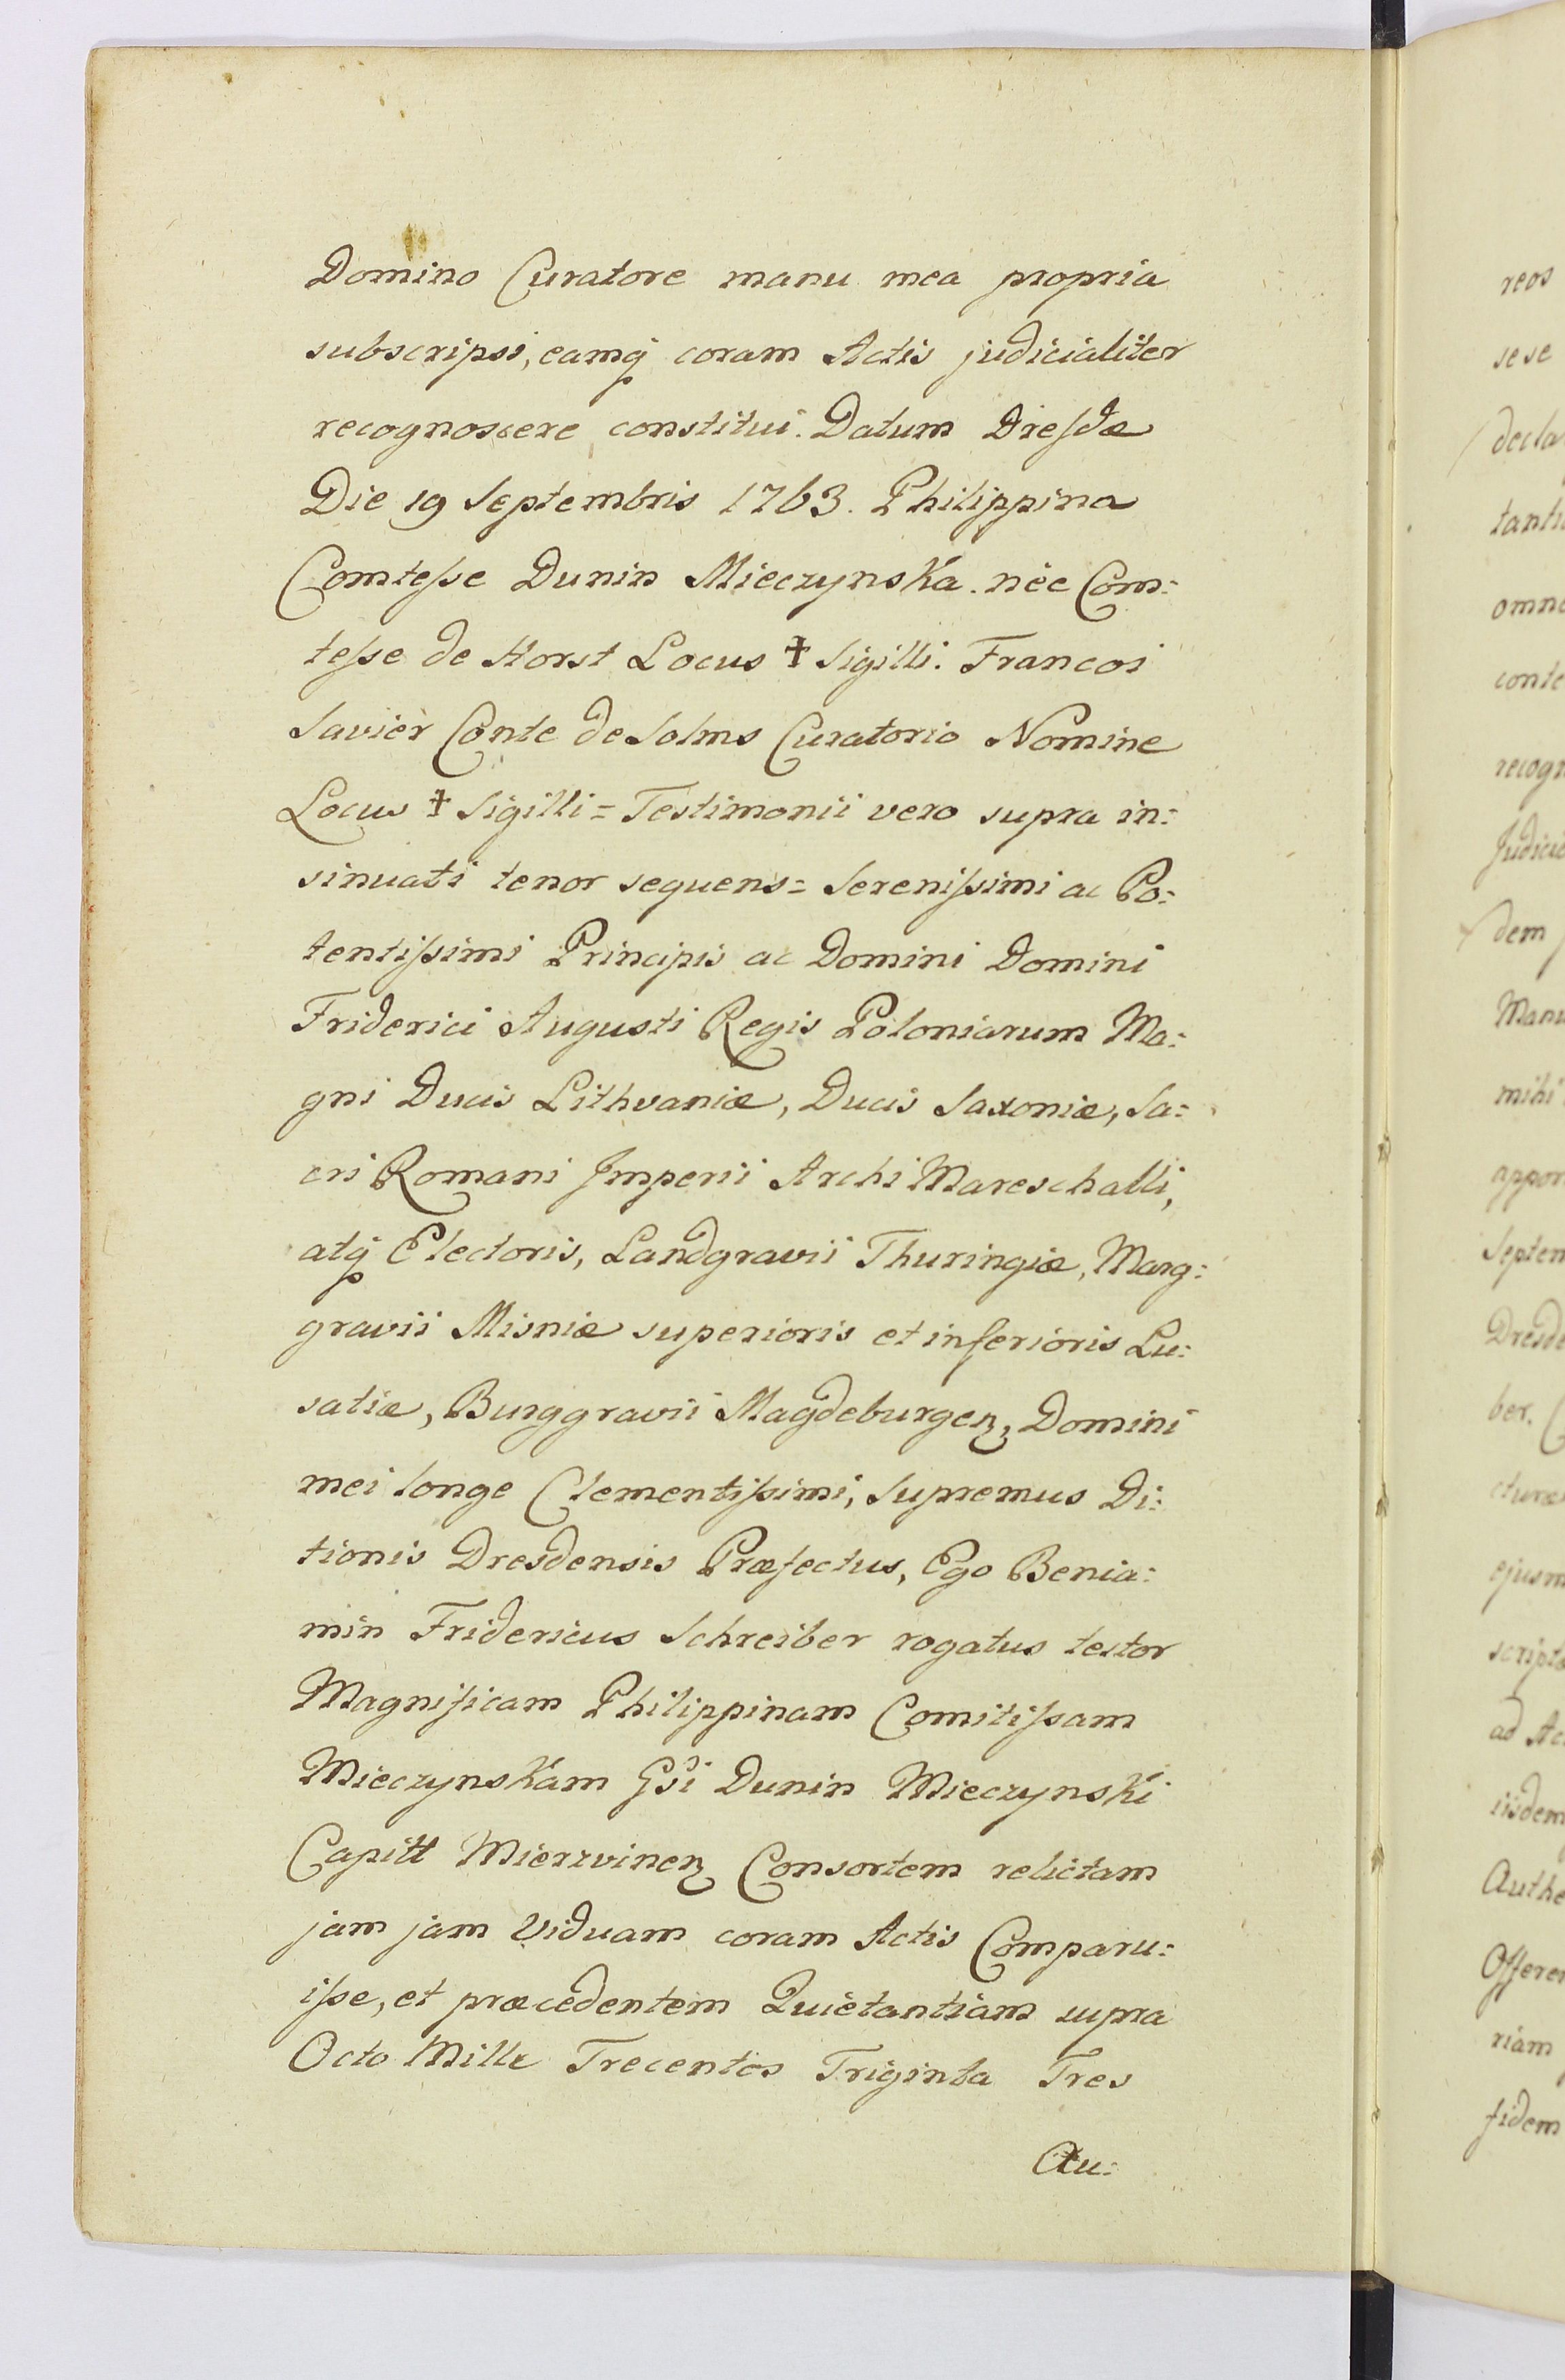 Domino Curatore manu mea propria
subscripsi, eamq̃ coram Actis judicialiter
recognoscere constitui. Datum Dresdæ
Die 19 Septembris 1763. Philippina
Comtesse Dunin Mieczynska. née Com:
tesse de Horst Locus ✝ Sigilli. Francoi
Savier Conte de Solms Curatorio Nomine
Locus ✝ Sigilli = Testimonii vero supra in:
sinuati tenor sequens = Serenissimi ac Po:
tentissimi Principis ac Domini Domini
Friderici Augusti Regis Poloniarum Ma:
gni Ducis Lithvaniæ, Ducis Saxoniæ, Sa:
cri Romani Imperii Archi Mareschalli,
atq̃ Electoris, Landgravii Thuringiæ, Marg:
gravii Misniæ superioris et inferioris Lu:
satiæ, Burggravii Magdeburgen, Domini
mei longe Clementissimi, Supremus Di:
tionis Dresdensis Præfectus, Ego Benia:
min Fridericus Schreiber rogatus testor
Magnificam Philippinam Comitissam
Mieczynskam Gsi Dunin Mieczynski
Capitt Mierzvinen Consortem relictam
jam jam Viduam coram Actis Comparu:
isse, et præcedentem Quietantiam supra
Octo Mille Trecentos Triginta Tres
Au:
reos
sese
decla
tanti
omn
conte
recogn
Judici
dem
Manu
mihi
appon
Septem
Dresd
ber.
cturæ
ejusm
script
ad Ac
iisdem
Authe
Offeren
riam
fidem